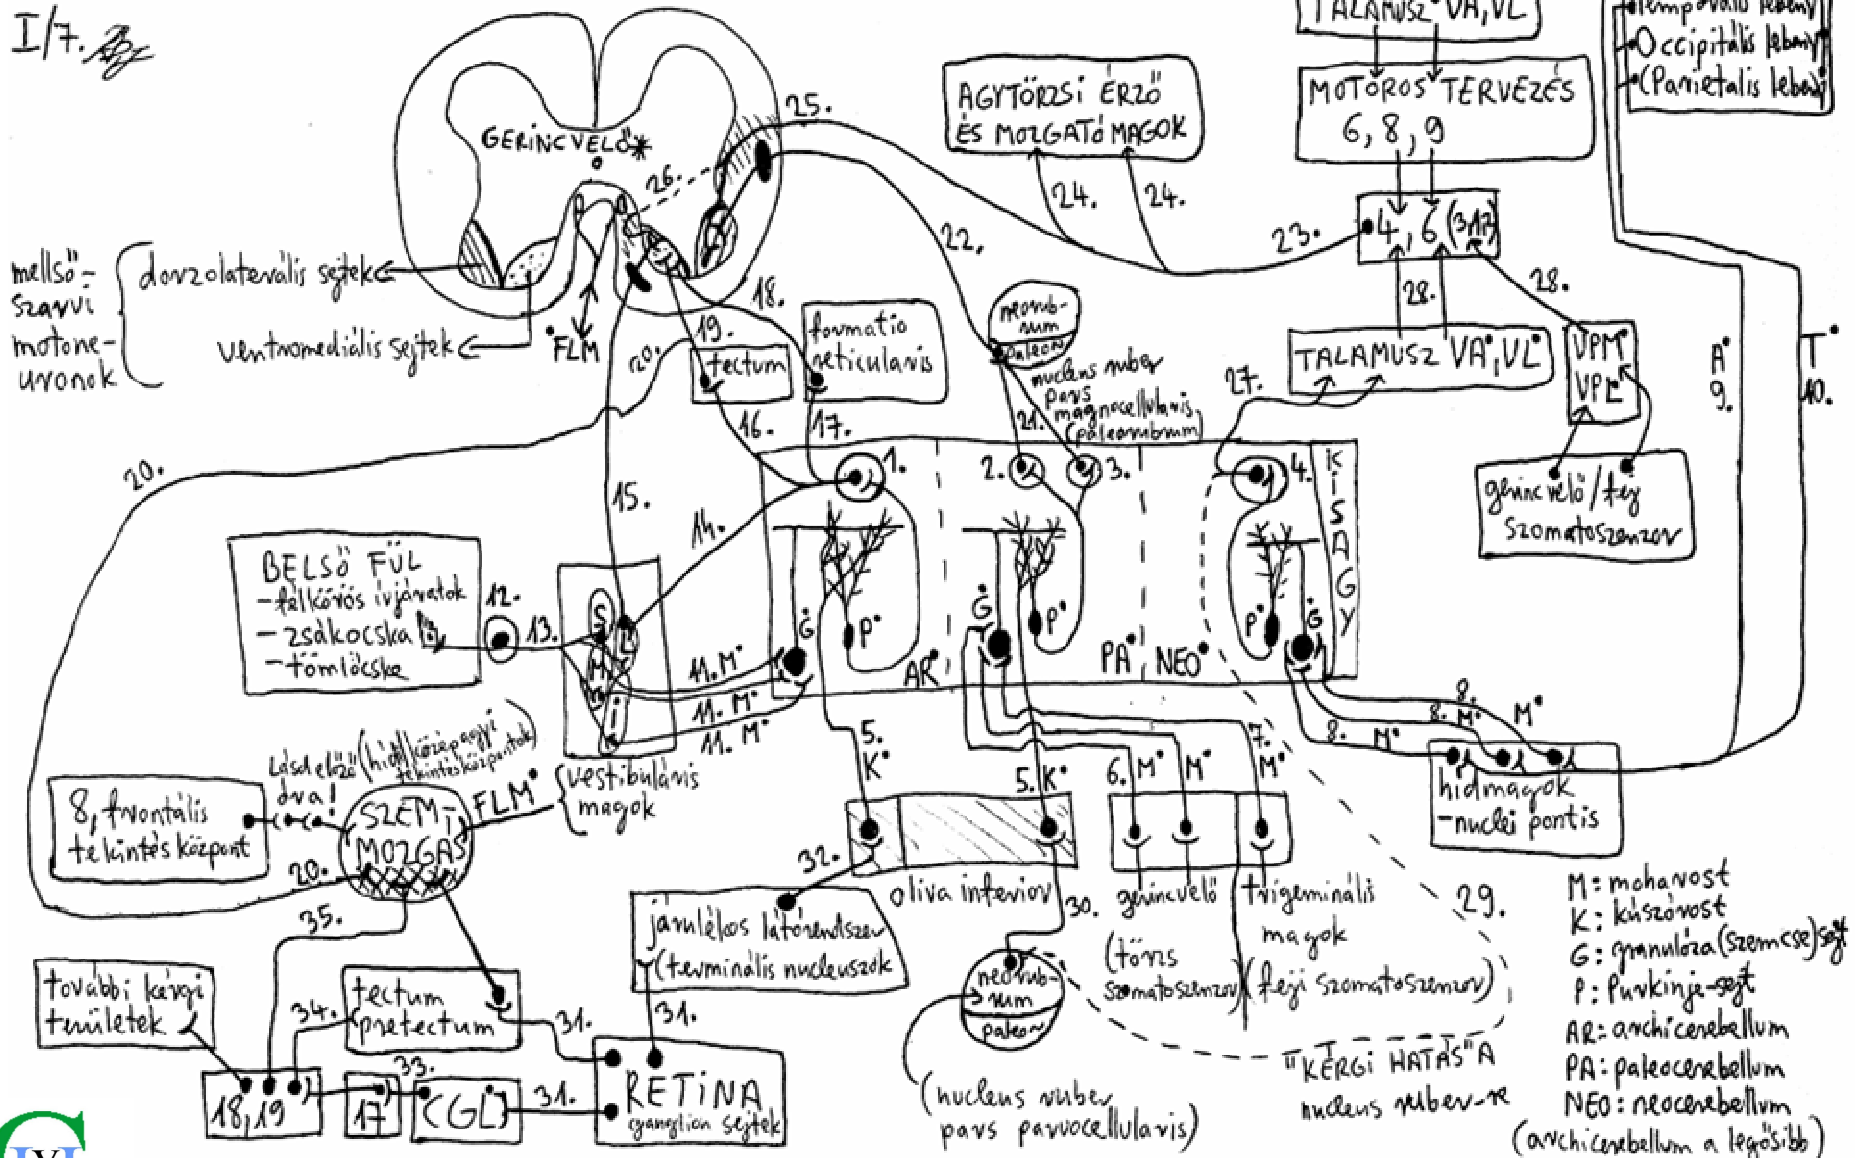 I/7.
GERINCVELŐ*
mellső-
szarvi
motone-
uronok
dorzolaterális sejtek
ventromediális sejtek
FLM
25.
26.
22.
18.
19.
20.
tectum
formatio
reticularis
16.
17.
15.
14.
AGYTÖRZSI ÉRZŐ
ÉS MOZGATÓ MAGOK
24.
24.
23.
TALAMUSZ VA, VL
MOTOROS TERVEZÉS
6, 8, 9
4, 6 (3,1,2)
28.
28.
Temporális lebeny
Occipitális lebeny
(Parietalis lebeny)
neorub-
rum
paleor
nucleus ruber
pars
magnocellularis
(paleorubrum)
21.
27.
TALAMUSZ VA, VL
VPM
VPL
A
9.
T
10.
gerincvelő/fej
szomatoszenzor
20.
1.
2.
3.
4.
KISAGY
G
P
AR
G
P
PA
NEO
P
G
BELSŐ FÜL
- félkörös ívjáratok
- zsákocska
- tömlőcske
12.
13.
S
L
M
i
11. M
11. M
11. M
vestibuláris
magok
8, frontális
tekintésközpont
Lásd előző (híd/középagyi
ábra! tekintésközpontok)
SZEM-
MOZGÁS
FLM
20.
35.
5.
K
5. K
6. M
M
7.
M
8.
8. M
8. M
M
hídmagok
- nuclei pontis
32.
oliva inferior
30.
gerincvelő
(törzs
szomatoszenzor)
trigeminális
magok
(feji szomatoszenzor)
29.
járulékos látórendszer
(terminális nucleuszok
31.
további kérgi
területek
34.
tectum
pretectum
31.
18, 19
17
33.
CGL
31.
RETINA
ganglion sejtek
neorub-
rum
paleor
(nucleus ruber
pars parvocellularis)
"KÉRGI HATÁS" A
nucleus ruber-re
M: moharost
K: kúszórost
G: granulóza (szemcse) sejt
P: Purkinje-sejt
AR: archicerebellum
PA: paleocerebellum
NEO: neocerebellum
(archicerebellum a legősibb)